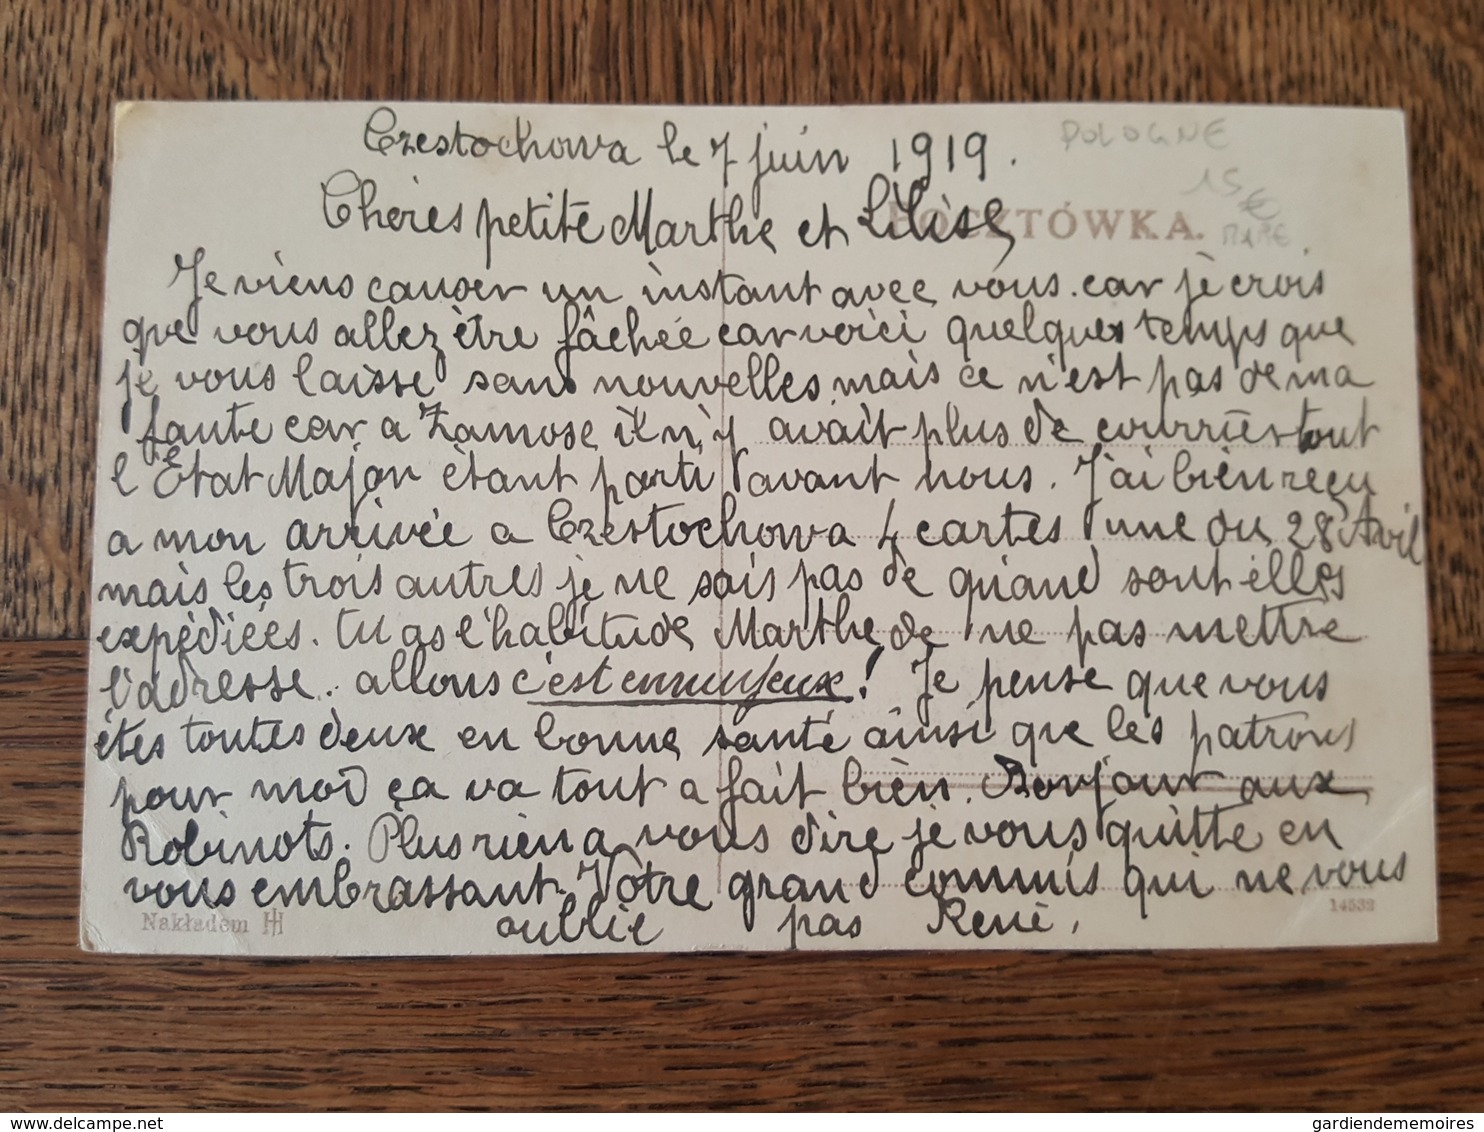 Czestochowa le 7 juin 1919.
POLOGNE
15 €
Chères petite Marthe et Lilise
POCZTÓWKA.
Je viens causer un instant avec vous. car je crois
que vous allez être fâchée car voici quelques temps que
je vous laisse sans nouvelles, mais ce n'est pas de ma
faute car a Zamosc il n'y avait plus de courrier tout
l'Etat Major étant parti avant nous. J'ai bien reçu
a mon arrivée a Czestochowa 4 cartes une du 28 Avril
mais les trois autres je ne sais pas de quand sont elles
expédiées. tu as l'habitude Marthe de ne pas mettre
l'adresse. allons c'est ennuyeux! Je pense que vous
êtes toutes deux en bonne santé ainsi que les patrons
pour moi ça va tout a fait bien. Bonjour aux
Robinots. Plus rien a vous dire je vous quitte en
vous embrassant. Votre grand commis qui ne vous
oublie pas René.
Nakładem HH
14532
delcampe.net
gardiendememoires